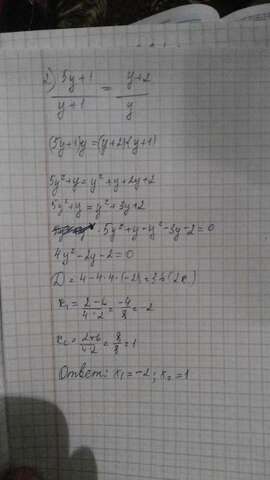 2) (5y+1)/(y+1) = (y+2)/y
(5y+1)y=(y+2)·(y+1)
5y²+y=y²+y+2y+2
5y²+y=y²+3y+2
5y²+y-y²-3y-2=0
4y²-2y-2=0
D=4-4·4·(-2)=36(2к)
x₁=(2-6)/(4·2)=-4/8=-2
x₂=(2+6)/(4·2)=8/8=1
Ответ: x₁=-2; x₂=1